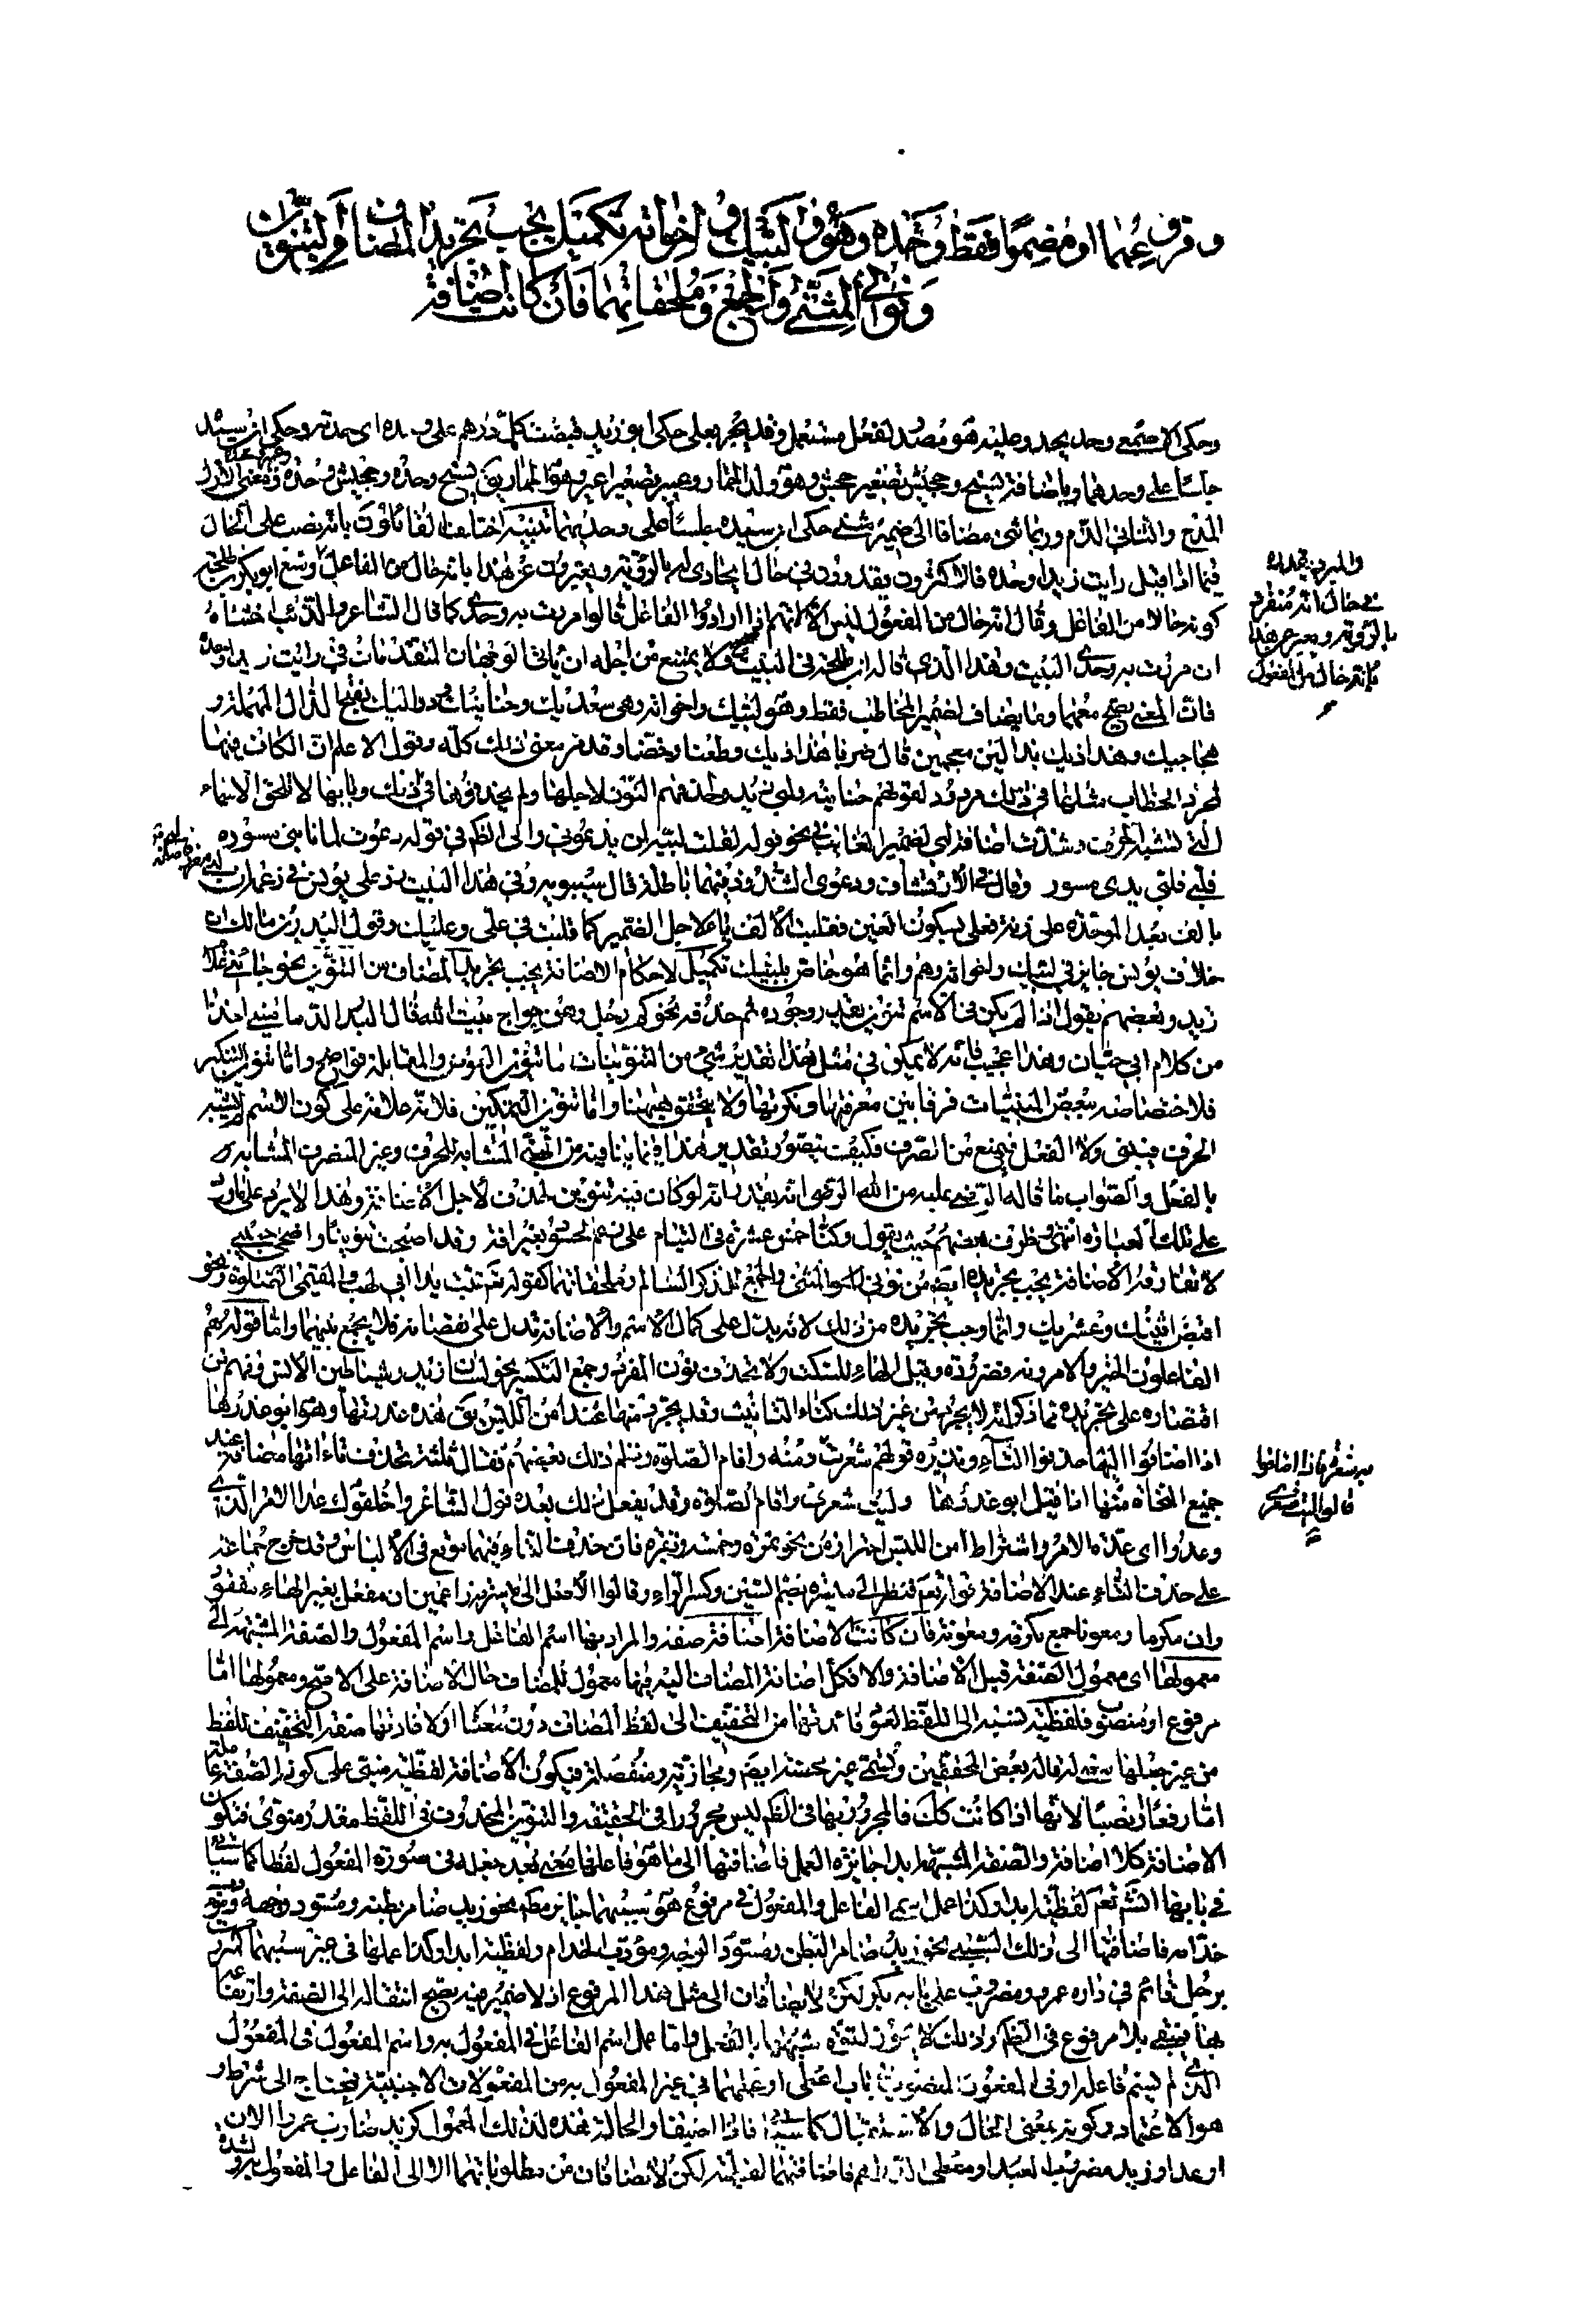 وفرق عنهما او مضمرا فقط وحده وهو في لبيك واخواته تكميل يجب تجريد المضاف من التنوين
ونوني المثنى والجمع وملحقاتهما فان كانت اضافة
وحكى الاصمعي وحد يحد وعليه هو مصدر لفعل مستعمل وقد يجر بعلى حكى ابو زيد قبضت كل درهم على وحده اى حدته وحكى ابن سيده
جلسا على وحدهما وباضافة نسيج وجحيش تصغير جحش وهو ولد الحمار وعيير تصغير عير وهو الحمار يق نسيج وحده وجحيش وحده ومعنى الاول
المدح والثانى الذم وربما ثنى مضافا الى ضمير مثنى حكى ابن سيده جلسا على وحديهما تنبيه اختلف القائلون بانه نصب على الحال
فيما اذا قيل رايت زيدا وحده فالاكثرون يقدرون فى حال ايحادى له بالرؤية ويعبرون عن هذا بانه حال من الفاعل ومنع ابو بكر بن طلحة
كونه حالا من الفاعل وقال انه حال من المفعول ليس الا لانهم اذا ارادوا الفاعل قالوا مررت به وحدى كما قال الشاعر والذئب اخشاه
ان مررت به وحدى البيت وهذا الذى قاله ابن طلحة فى البيت صحيح ولا يمتنع من اجله ان ياتى الوجهان المتقدمان فى رايت زيدا وحده
فان المعنى يصح معهما وما يضاف لضمير المخاطب فقط وهو لبيك واخواته وهى سعديك وحنانيك ودواليك بفتح الدال المهملة و
حجازيك وهذاذيك بذالين معجمتين قال ضربا هذاذيك وطعنا وخضا وقد مر معنى ذلك كله وقول الاعلم ان الكاف فيها
لمجرد الخطاب مثلها فى ذلك مردود لقولهم حنانيه ولبى زيد وحذفهم النون لاجلها ولم يحذفوها فى ذلك وبانها لا تلحق الاسماء
التى لا تشبه الحرف وشذت اضافة لبى لضمير الغائب فى نحو قوله لقلت لبيه لمن يدعونى والى الظم فى قوله دعوت لما نابنى مسورا
فلبى فلبى يدى مسور وقال فى الارتشاف ودعوى الشذوذ فيهما باطلة قال سيبويه وفى هذا البيت رد على يونس فى زعمه
بالف بعد الموحدة على زنة فعلى بسكون العين فقلبت الالف ياء لاجل الضمير كما قلبت فى على وعليك وقول البدر بن مالك ان
خلاف يونس جاء فى لبيك واخواته وهم وانما هو خاص بلبيك تكميل لاحكام الاضافة يجب تجريد المضاف من التنوين نحو جاءنى غلام
زيد وبعضهم يقول اذا لم يكن فى الاسم تنوين يقدر وجوده ثم حذفه نحو كم رجل وهن حواج بيت الله قال البدر الدمامينى اخذا
من كلام ابى حيان وهذا عجيب فانه لا يمكن فى مثل هذا تقدير شىء من التنوينات ما تنوين العوض والمقابلة فواضح واما تنوين التنكير
فلاختصاصه ببعض المبنيات فرقا بين معرفتها ونكرتها ولا يتحقق هيهنا واما تنوين التمكين فلانه علامة على كون الاسم لم يشبه
الحرف فيبنى ولا الفعل فيمنع من الصرف فكيف يتصور تقدير هذا فيما ينافيه من المبنى المشابه للحرف وغير المنصرف المشابه
بالفعل والصواب ما قاله الرضى عليه من الله الرضى انه يقدر انه لو كان فيه تنوين لحذف لاجل الاضافة وهذا لا يرد على ما ورد
على تلك العبارة انتهى وظرف بعضهم حيث يقول وكنا خمس عشرة فى التيام على رغم الحسود بغير افة وقد اصبحت تنوينا واضحى حبيبى
لا تفارقه الاضافة يجب تجريده ايض من نونى المثنى والجمع المذكر السالم وملحقاتهما كقوله تعم تبت يدا ابى لهب والمقيمى الصلوة ونحو
اقبض اثنيك وعشريك وانما وجب تجريده من ذلك لانه يدل على كمال الاسم والاضافة تدل على نقصانه فلا يجمع بينهما واما قوله هم
الفاعلون الخير والامرونه فضرورة وقيل الهاء للسكت ولا تحذف نون المفرد وجمع التكسير نحو لسان زيد وشياطين الانس وفهم من
اقتصاره على تجريده مما ذكر انه لا يجرد من غير ذلك كتاء التانيث وقد يجرد منها عند امن اللبس يق هذه عذرتها وهو ابو عذرها
اذا اضافوا اليها حذفوا التاء ونظيره قولهم شعرت ومنه واقام الصلوة ونظم ذلك بعضهم فقال ثلثة تحذف تاءاتها مضافة عند
جميع النحاة منها اذا قيل ابو عذرها وليت شعرى واقام الصلوة وقد يفعل ذلك بعده قول الشاعر واخلفوك عدا الامر الذى
وعدوا اى عدة الامر واشتراط امن اللبس احترازه من نحو تمرة وخمسة ونمرة فان حذف التاء فيها موقع فى الالباس وقد خرج جماعة
على حذف التاء عند الاضافة قوله تعم فنظرة الى ميسره بضم السين وكسر الراء وقالوا الاصل الى ميسرته زاعمين ان مفعل بغير الهاء مفقود
وان مكرما ومعونا جمع مكرمة ومعونة فان كانت الاضافة اضافة صفة والمراد بها اسم الفاعل واسم المفعول والصفة المشبهة الى
معمولها اى معمول الصفة قبل الاضافة والا فكل اضافة المضاف اليه فيها معمول للمضاف حال الاضافة على الاصح ومعمولها اما
مرفوع او منصوب فلفظية نسبة الى اللفظ لعود فائدتها من التخفيف الى لفظ المضاف دون معناه اولافادتها صفة التخفيف للفظ
من غير جملها قاله بعض المحققين وتسمى غير محضة ايضم ومجازية ومنفصلة فيكون الاضافة لفظية مبنى على كون الصفة عاملة
اما رفعا او نصبا لانها اذا كانت كك فالمجرور بها فى الظم ليس مجرورا فى الحقيقة والتنوين المحذوف فى اللفظ مقدر منوى فتكون
الاضافة كلا اضافة والصفة المشبهة ابدا جائزة العمل فاضافتها الى ما هو فاعلها معنى بعد جعله فى صورة المفعول لفظا كما سياتى
فى بابها انشم تعم لفظية ابدا وكذا عمل اسمى الفاعل والمفعول فى مرفوع هو سببهما جائز مطم نحو زيد ضامر بطنه ومسود وجهه ومؤدب
خدامه فاضافتهما الى ذلك السببى نحو زيد ضامر البطن ومسود الوجه ومؤدب الخدام لفظية ابدا وكذا عملهما فى غير سببهما كمررت
برجل قائم فى داره عمرو ومضروب على بابه بكر لكن لا يضافان الى مثل هذا المرفوع اذ لا ضمير فيه يصح انتقاله الى الصفة وارتفاعه
بها فيبقى بلا مرفوع فى الظم وذلك لا يجوز لقوة شبهها بالفعل واما عمل اسم الفاعل فى المفعول به واسم المفعول فى المفعول
الذى لم يسم فاعله او فى المفعول المنصوب باب اعطى او عملهما فى غير المفعول به من المفعولات الاجنبية فيحتاج الى شرط و
هو الاعتماد وكونه بمعنى الحال والاستقبال كما سياتى فاذا اضيفا والحالة هذه لذلك المعمول كزيد ضارب عمرو الان
او غدا وزيد مضروب العبد او معطى الدرهم فاضافتهما لفظية لكن لا يضافان من مطلوباتهما الا الى الفاعل والمفعول به
فى حال انه منفرد
بالرؤية ويعبر عن هذا
بانه حال من المفعول